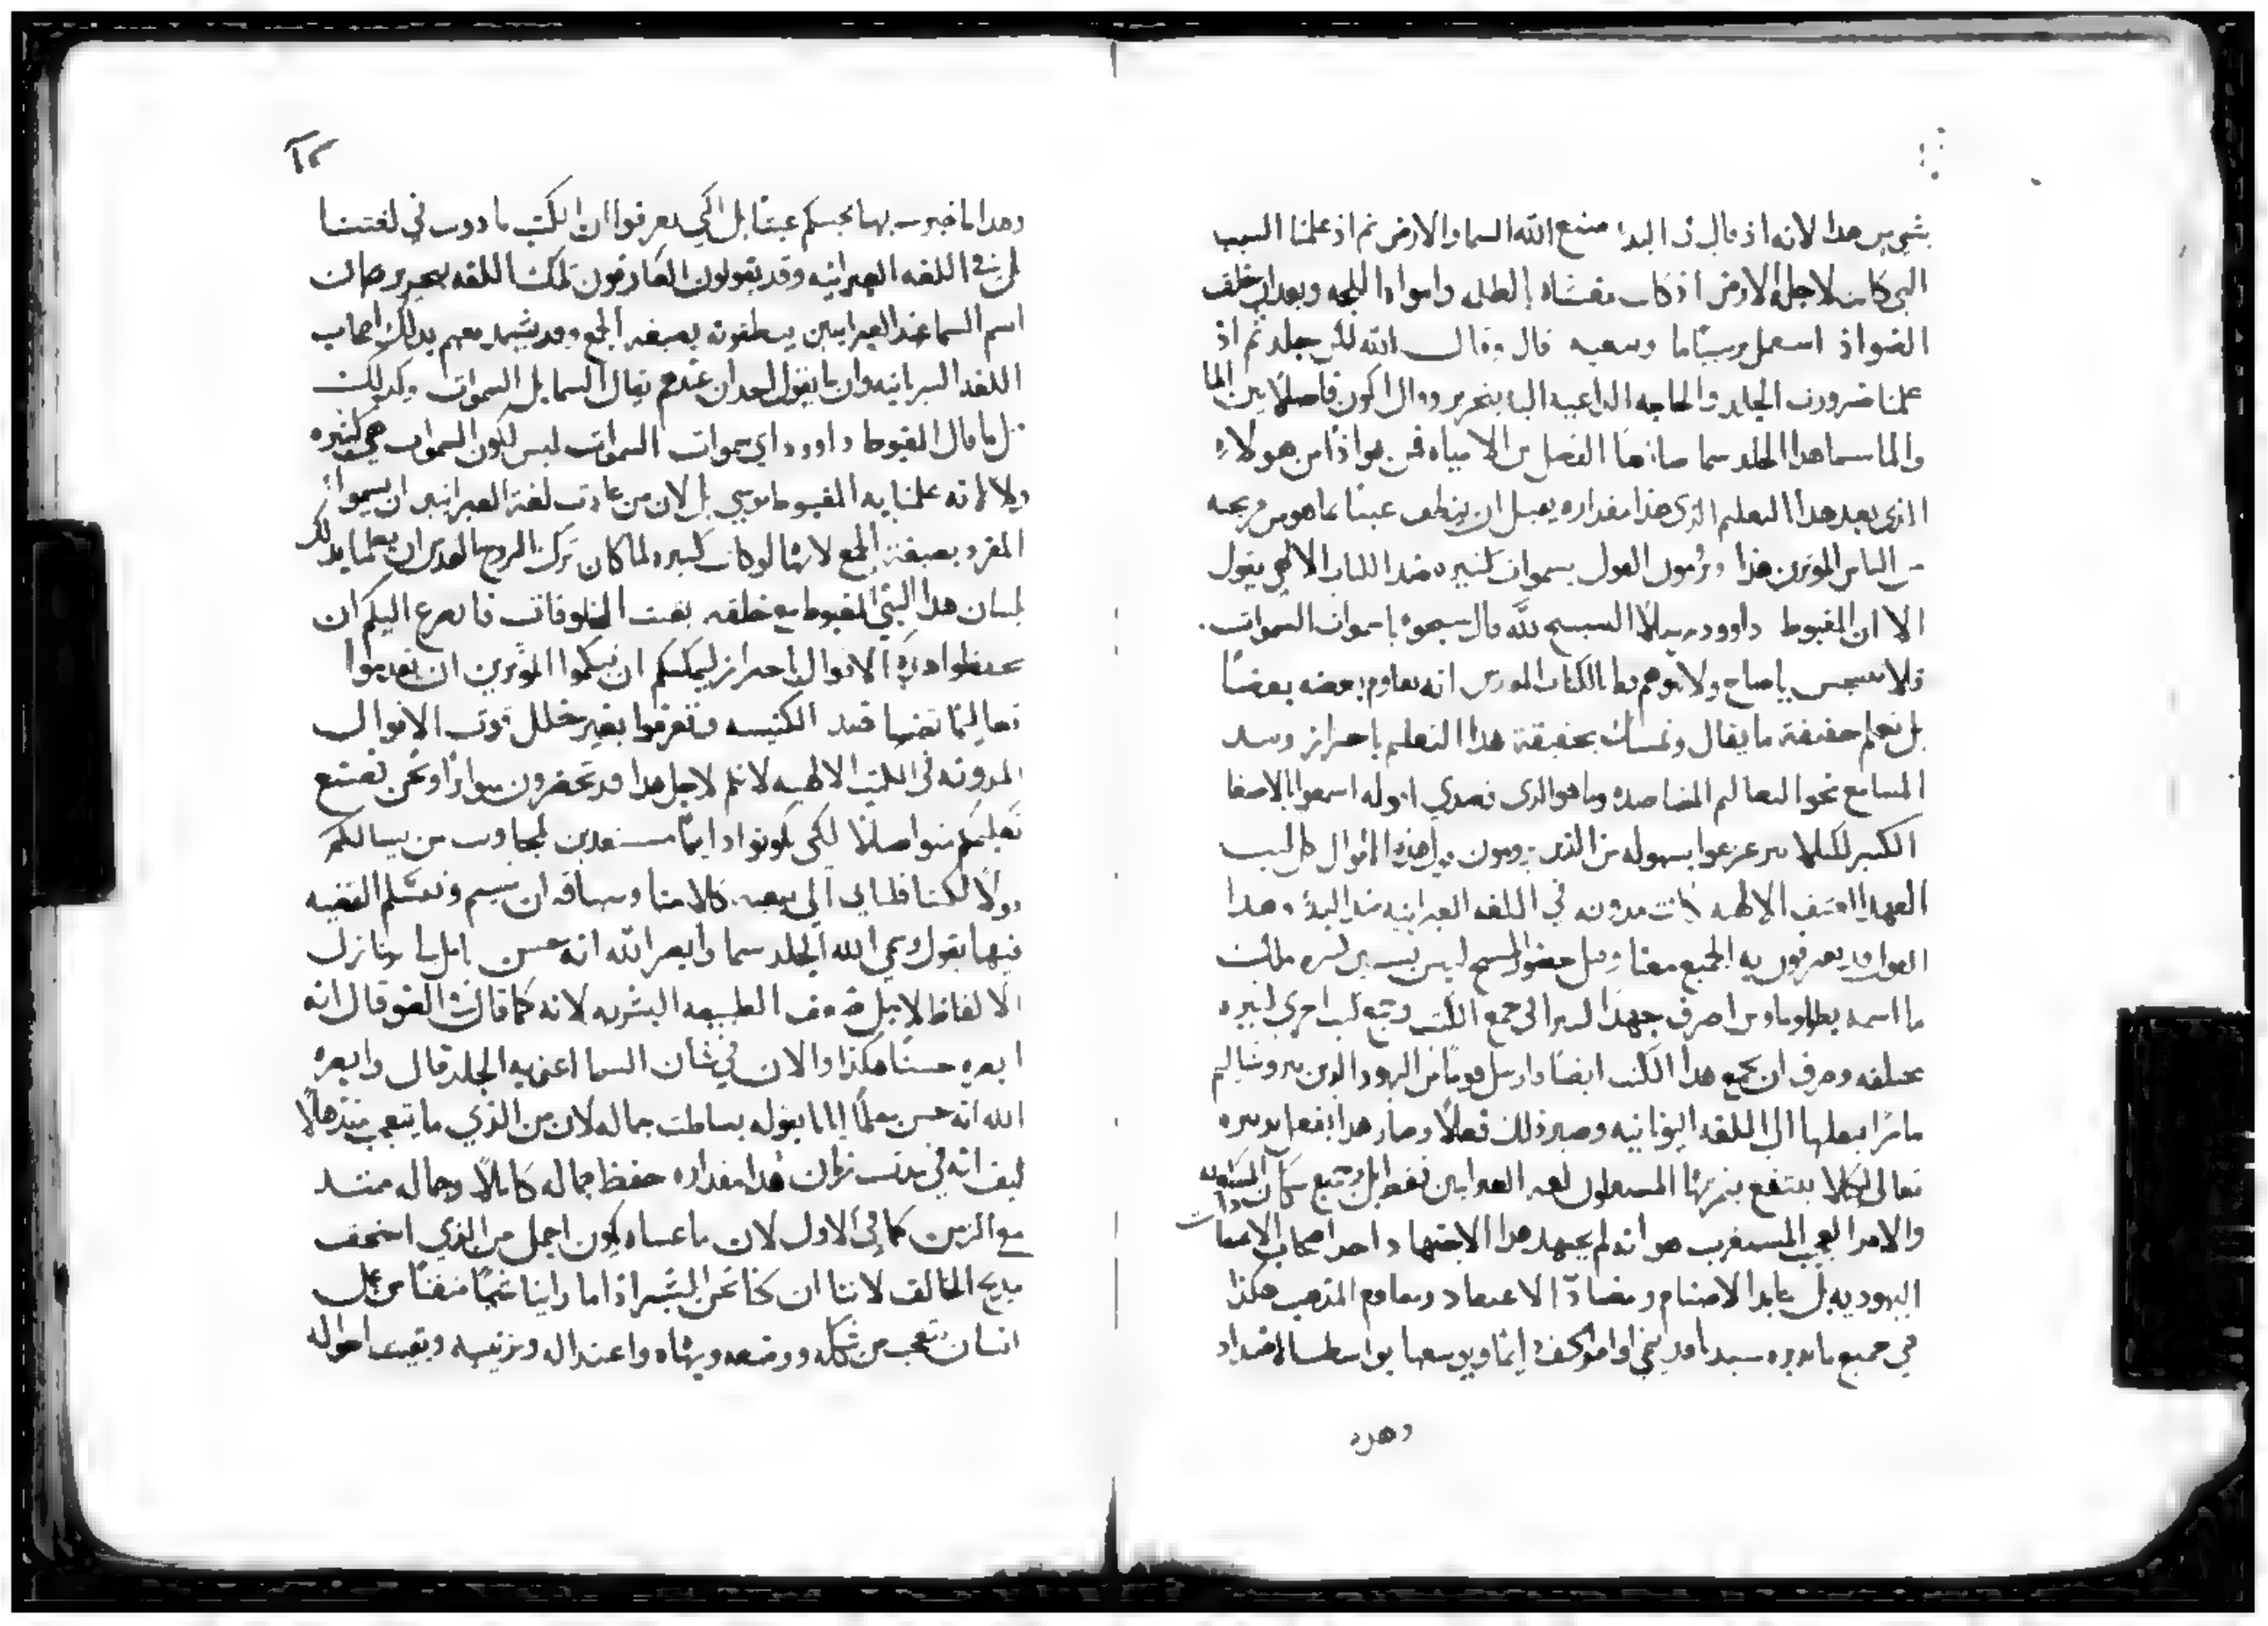 بشي من هدا لانه اذ قال في البدء صنع الله السما والارض ثم اذ علمنا السبب
التي كانت لاجله الارض اذ كانت مغشاه بالظلمه وامواه اللجه وبعد ان خلف
الضو اذ استعمل وسعيه قال وقال الله لكن جلد ثم اذ
علمنا ضرورت الجلد والحاجه الداعيه اليه بتحرير وقال اكون فاصلا بين الما
والما سما هدا الجلد سما الفصل من الامياه فمن هو اذًا من هولاء
الذي بعد هدا التعليم الذي هذا مقداره يقبل ان ينطف عبثا بما هو من قريحته
من الناس الموثرين هذا ويرمون القول بسموات كثيره ضد الكتاب الالهي يقول
الا ان المغبوط داوود التسبيح لله قال سبحوه يا سموات السموات.
فلا تعجبن يا صاح ولا تتوهم بذا الكتاب المقدس انه يقاوم بعضه بعضًا
بل تعلم حقيقة ما يقال وتمسك بحقيقة هدا التعليم باحتراز وسد
المسامع نحو التعاليم المضادده وما هو الذي قصدي اقوله اسمعوا بالاصغا
الكثير لكيلا تتزعزعوا بسهوله من الذين يرومون هذه الاقوال كل كتب
العهد العتيف الالهيه كانت مدونه في اللغه العبرانيه منذ البدء وهدا
القول قد يعرفون به الجميع معنا وقبل حضور المسيح ليس بسنين كثيره ملك
ما اسمه بطلوماوس اصرف جهدًا كثيرا في جمع الكتب وجمع كتب اخري كثيره
مختلفه وعرف ان يجمع هدا الكتب ايضًا وارسل قومًا من اليهود الذين من اورشاليم
مامرًا بنقلها الي اللغه اليونانيه وصير ذلك فعلاً وصار هدا بفعل تدبيره
تعالي لكيلا ينتفع بثمرتها المستعملون لغه العبرانيين فقط بل وجميع سكان المسكونه
والامر العجيب المستغرب هو انه لم يجتهد هدا الاجتهاد احد اصحاب الامانات
اليهوديه بل عابد الاصنام ومضادّ الاعتقاد ومقاوم المذهب هكذا
هي جميع ما يدبره سيدنا اوامر الحق دايمًا ويوسعها بواسطة الاضداد
وهده
وهدا ما خبرت بها محبتكم عبثًا بل لكي تعرفوا ان الكتب ما دونت في لغتنا
بل في اللغه العبرانيه وقد يقولون العارفون تلك اللغه بتحرير ان
اسم السما عند العبرانيين ينطفونه بصيغه الجمع وقد يشهد معهم بدلك اصحاب
اللغه السريانيه وان ما يقول احد ان عندهم يقال السما بل السموات وكدلك
قال المغبوط داوود اي سموات السموات ليس لكون السموات هي كثيره
ولا انه علمنا به المغبوط موسي بل لان من عادت لغة العبرانيين ان يسموا
المفرد بصيغة الجمع لانها لو كانت كثيره لما كان ترك الروح القدس ان يعلمنا بدلك
بلسان هدا النبي المغبوط مع خلقه بقيت المخلوقات فاتضرع اليكم ان
تحفظوا هده الاقوال باحتراز ليمكنكم ان تبكموا الموثرين ان يقدموا
تعاليمًا تضاد الكنيسه وتعرفوا بغير خلل قوت الاقوال
المدونه في الكتب الالهيه لانكم لاجل هدا قد تحضرون متواترًا ونحن نصنع
تعليمكم متواصلاً لكي تكونوا دايمًا مستعدين لجاوب من يسالكم
قولاً لكننا فلناتي الي بقيه كلامنا وسياقه ان تتم ونتسلم القضيه
فيها يقول وسمي الله الجلد سما وابصر الله انه حسن تامل تنازل
الالفاظ لاجل ضعف الطبيعه البشريه لانه كما قال في الضو قال انه
ابصره حسنًا هكذا والان في شان السما اعني به الجلد قال وابصره
الله انه حسن معلمًا ايانا بقوله بساطت جماله لان من الذي ما يتعجب منذهلاً
كيف انه في مدت زمان هذا مقداره حفظ جماله كاملاً وجماله ممتد
مع الزمن كما في الاول لان ما عساه يكون اجمل من الذي استحف
مديح الخالف لاننا ان كنا نحن البشر اذا ما راينا شيًا متفنًا من عمل
انسان نتعجب من شكله ووضعه وبهاه واعتداله وترتيبه وبقيت احواله